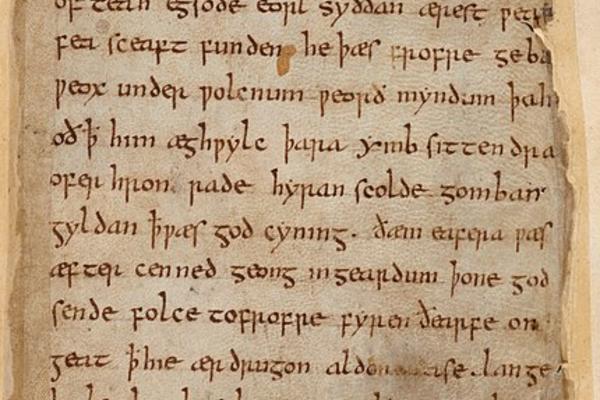 of teah egsode eorl syððan ærest ƿear
fea sceaft funden he þæs frofre geba
ƿeox under ƿolcnum ƿeorð myndum þah
oð ꝥ him æghƿylc þara ymb sittendra
ofer hron rade hyran scolde gomban
gyldan ꝥ ƿæs god cyning. ðæm eafera ƿæs
æfter cenned geong in geardum þone god
sende folce tofrofre fyren ðearfe on
geat ꝥ hie ær drugon lange